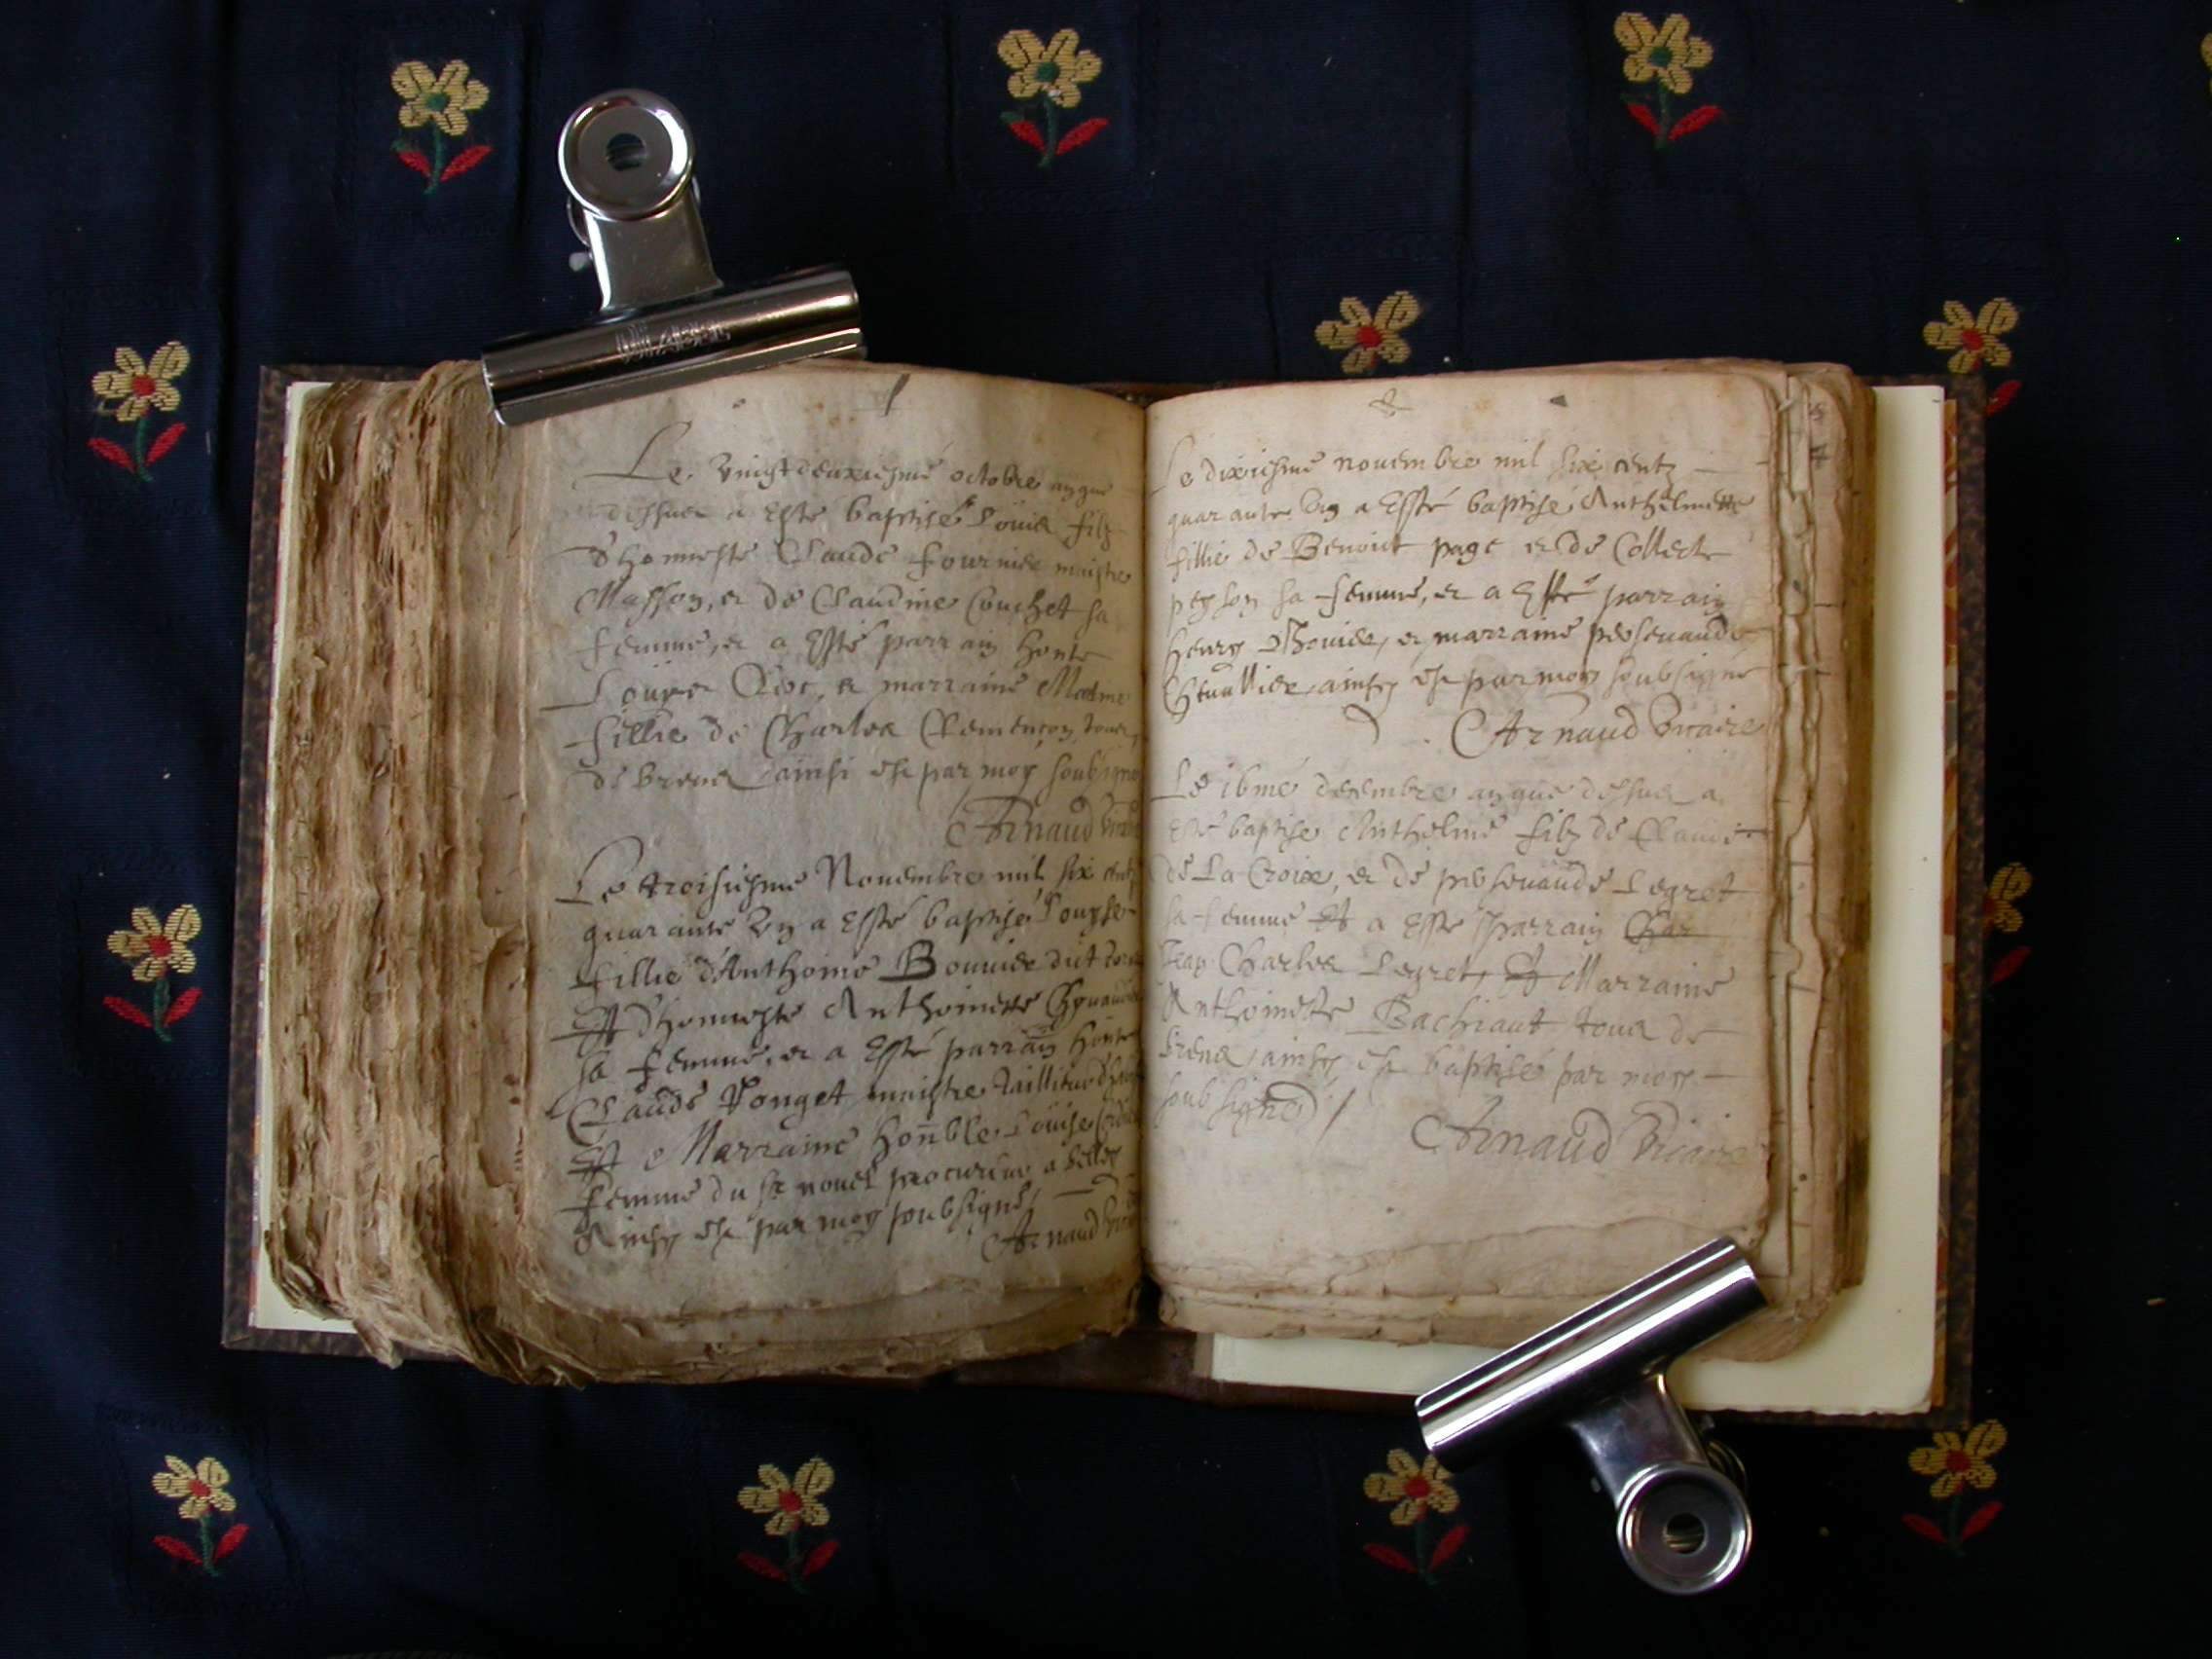 Le vingtdeuxiesme octobre an que
dessus a Esté baptisé Louis filz
d'honneste Claude fournier maistre
Masson, et de Claudine Couchet sa
femme, et a Esté parrain honte
Louys et marraine
fillie de Charles Clemençon, tous
de brenod ainsi est par moy soubsigné
Arnaud vicaire
Le troisiesme Novembre mil six centz
quarante Un a Esté baptisé Louyse
fillie d'Anthoine Bouvier dict
Et d'honneste Anthoinette
sa femme, et a Esté parrain honte
Claude Ponget maistre Taillieur
Et Marraine Honnble Louise
femme du sr novel procureur a belley
Ainsy est par moy soubsigné
Arnaud vicaire
Le dixiesme novembre mil six centz
quarante Un a Esté baptisé Anthelmette
fillie de Benoict page et de Collecte
sa femme, et a Esté parrain
henry et marraine
ainsy est par moy soubsigné
Arnaud vicaire
Le 16me decembre an que dessus a
Esté baptisé Anthelme filz de Claude
de La Croix, et de Legret
sa femme Et a Esté parrain Char
Jean Charles Legret, Et Marraine
Anthoinette Bachiaut tous de
brenod, ainsy est baptisé par moy
soubsigné
Arnaud Vicaire